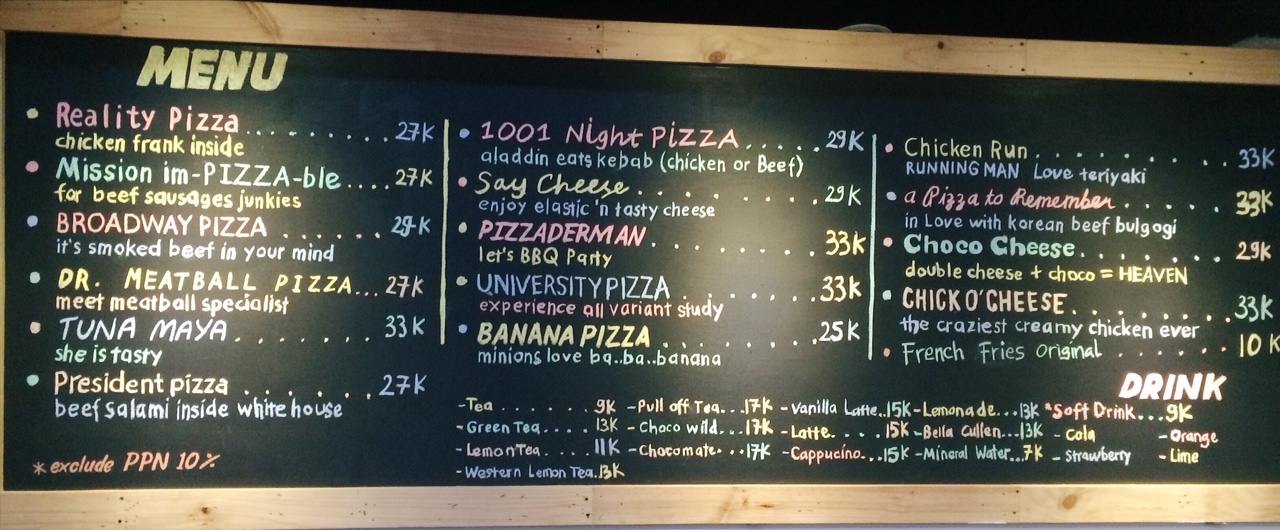 MENU
Reality Pizza.............27K
chicken frank inside
Mission im-PIZZA-ble....27K
for beef sausages junkies
BROADWAY PIZZA.......29K
it's smoked beef in your mind
DR. MEATBALL PIZZA...27K
meet meatball specialist
TUNA MAYA.........33K
she is tasty
President pizza.......27K
beef salami inside white house
*exclude PPN 10%
1001 Night PIZZA......29K
aladdin eats kebab (chicken or Beef)
Say Cheese.........29K
enjoy elastic 'n tasty cheese
PIZZADERMAN.......33K
let's BBQ Party
UNIVERSITY PIZZA......33K
experience all variant study
BANANA PIZZA......25K
minions love ba..ba..banana
Chicken Run.........33K
RUNNING MAN Love teriyaki
a Pizza to Remember.....33K
in Love with korean beef bulgogi
Choco Cheese.......29K
double cheese + choco = HEAVEN
CHICK O'CHEESE.......33K
the craziest creamy chicken ever
French Fries Original......10K
DRINK
-Tea.......9K -Pull off Tea...17K -Vanilla Latte..15K -Lemonade...13K *Soft Drink...9K
-Green Tea....13K -Choco wild...17K -Latte.....15K -Bella Cullen...13K -Cola -Orange
-Lemon Tea....11K -Chocomate...17K -Cappucino...15K -Mineral Water..7K -Strawberry -Lime
-Western Lemon Tea.13K